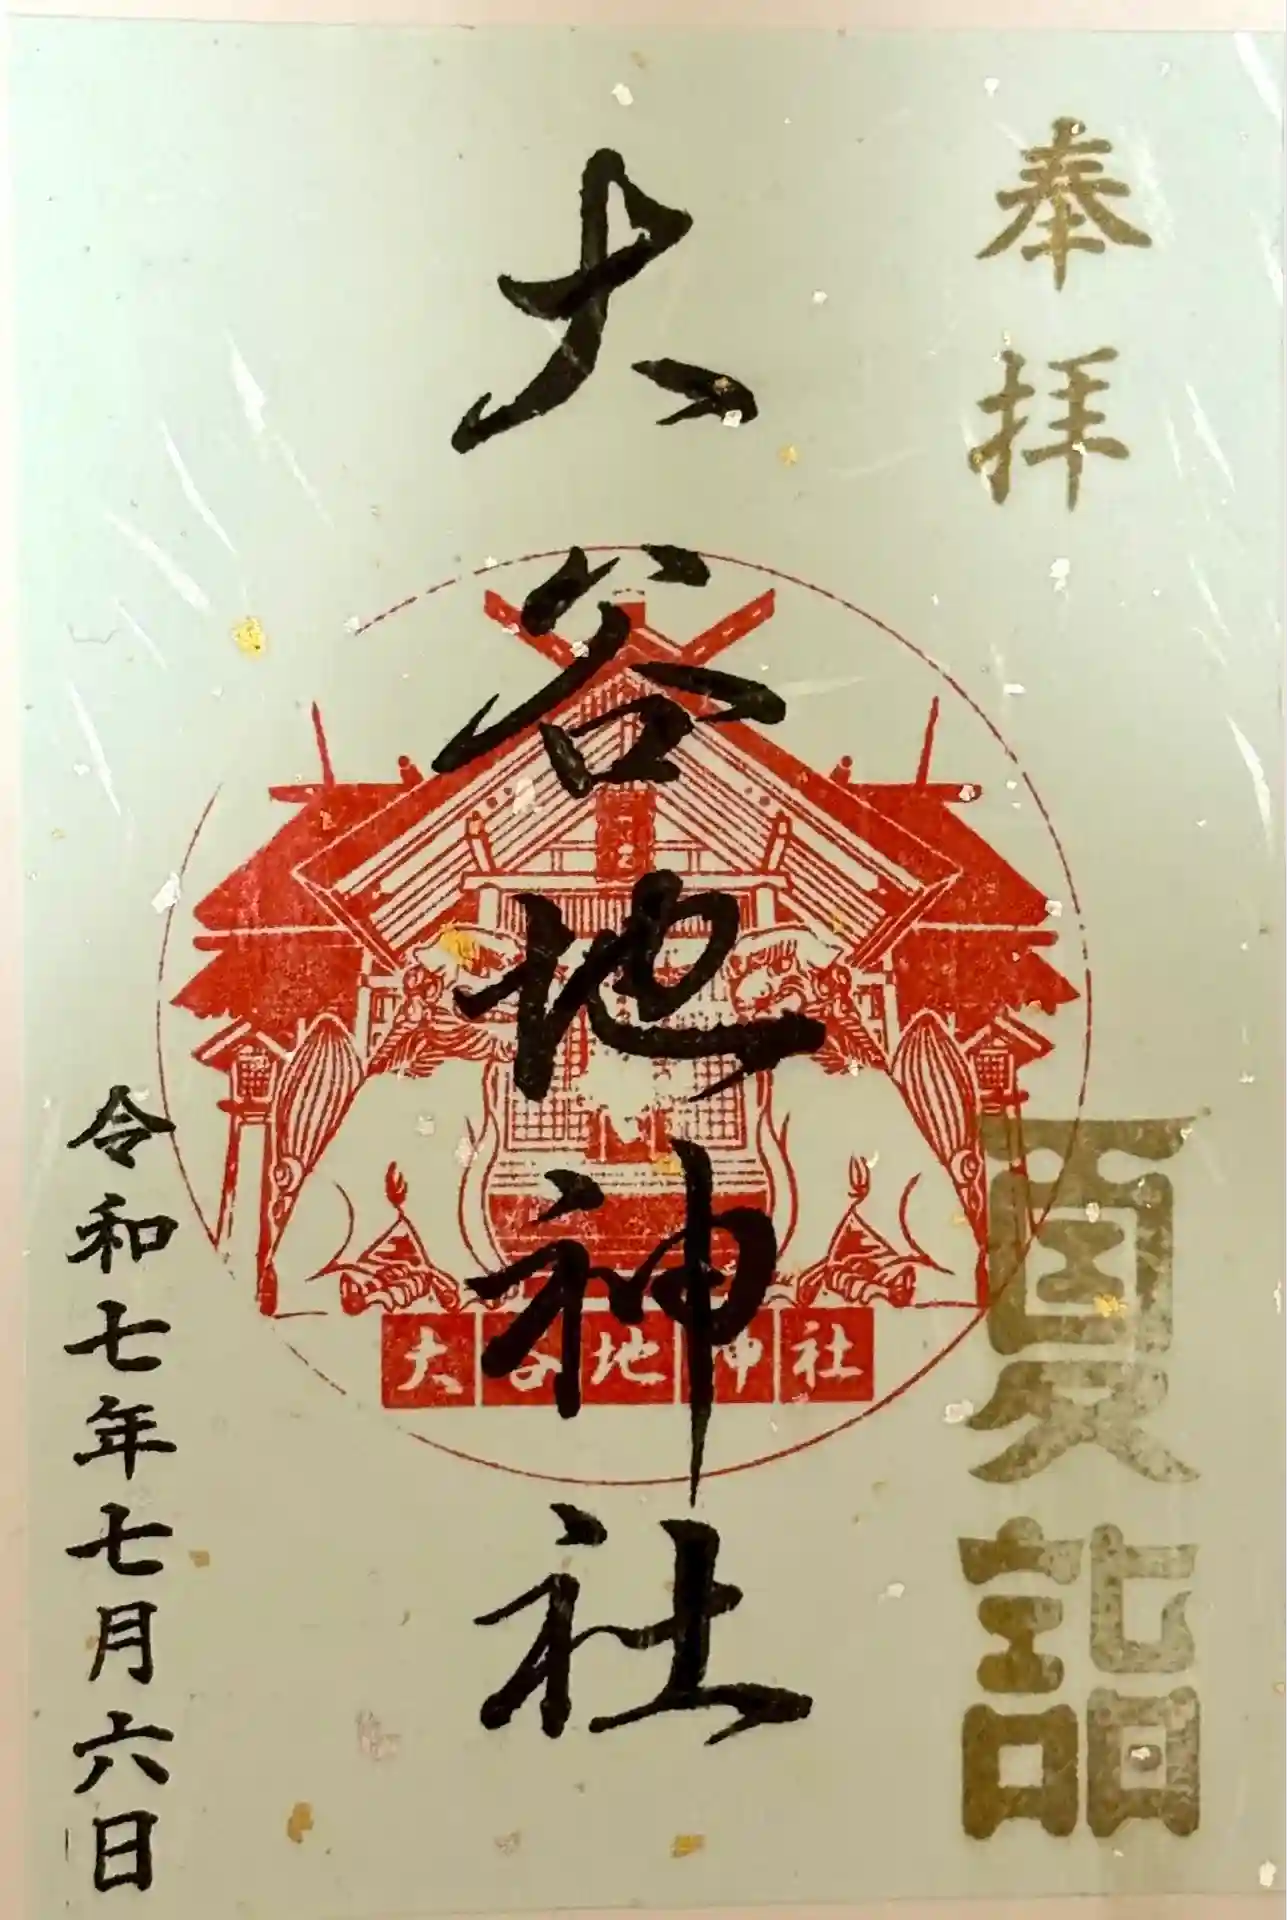 奉拝
夏詣
大谷地神社
大谷地神社
令和七年七月六日